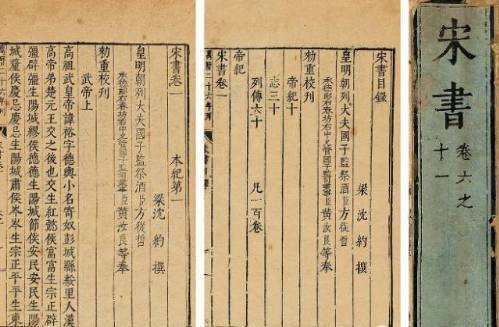 宋書卷一 本紀第一
梁 沈約 撰
皇明朝列大夫國子監祭酒臣方從哲
承德郎右春坊右中允管國子監司業事臣黃汝良等奉
勅重校刊
武帝上
高祖武皇帝諱裕字德輿小名寄奴彭城縣綏里人漢
高帝弟楚元王交之後也交生紅懿侯富富生宗正辟
彊辟彊生陽城繆侯德德生陽城節侯安民安民生陽
城釐侯慶忌慶忌生陽城肅侯岑岑生宗正平平生東
宋書目錄
梁 沈約 撰
皇明朝列大夫國子監祭酒臣方從哲
承德郎右春坊右中允管國子監司業事臣黃汝良等奉
勅重校刊
帝紀十
志三十
列傳六十 凡一百卷
帝紀
宋書卷一
萬曆二十六年刊
宋書
卷六之
十一